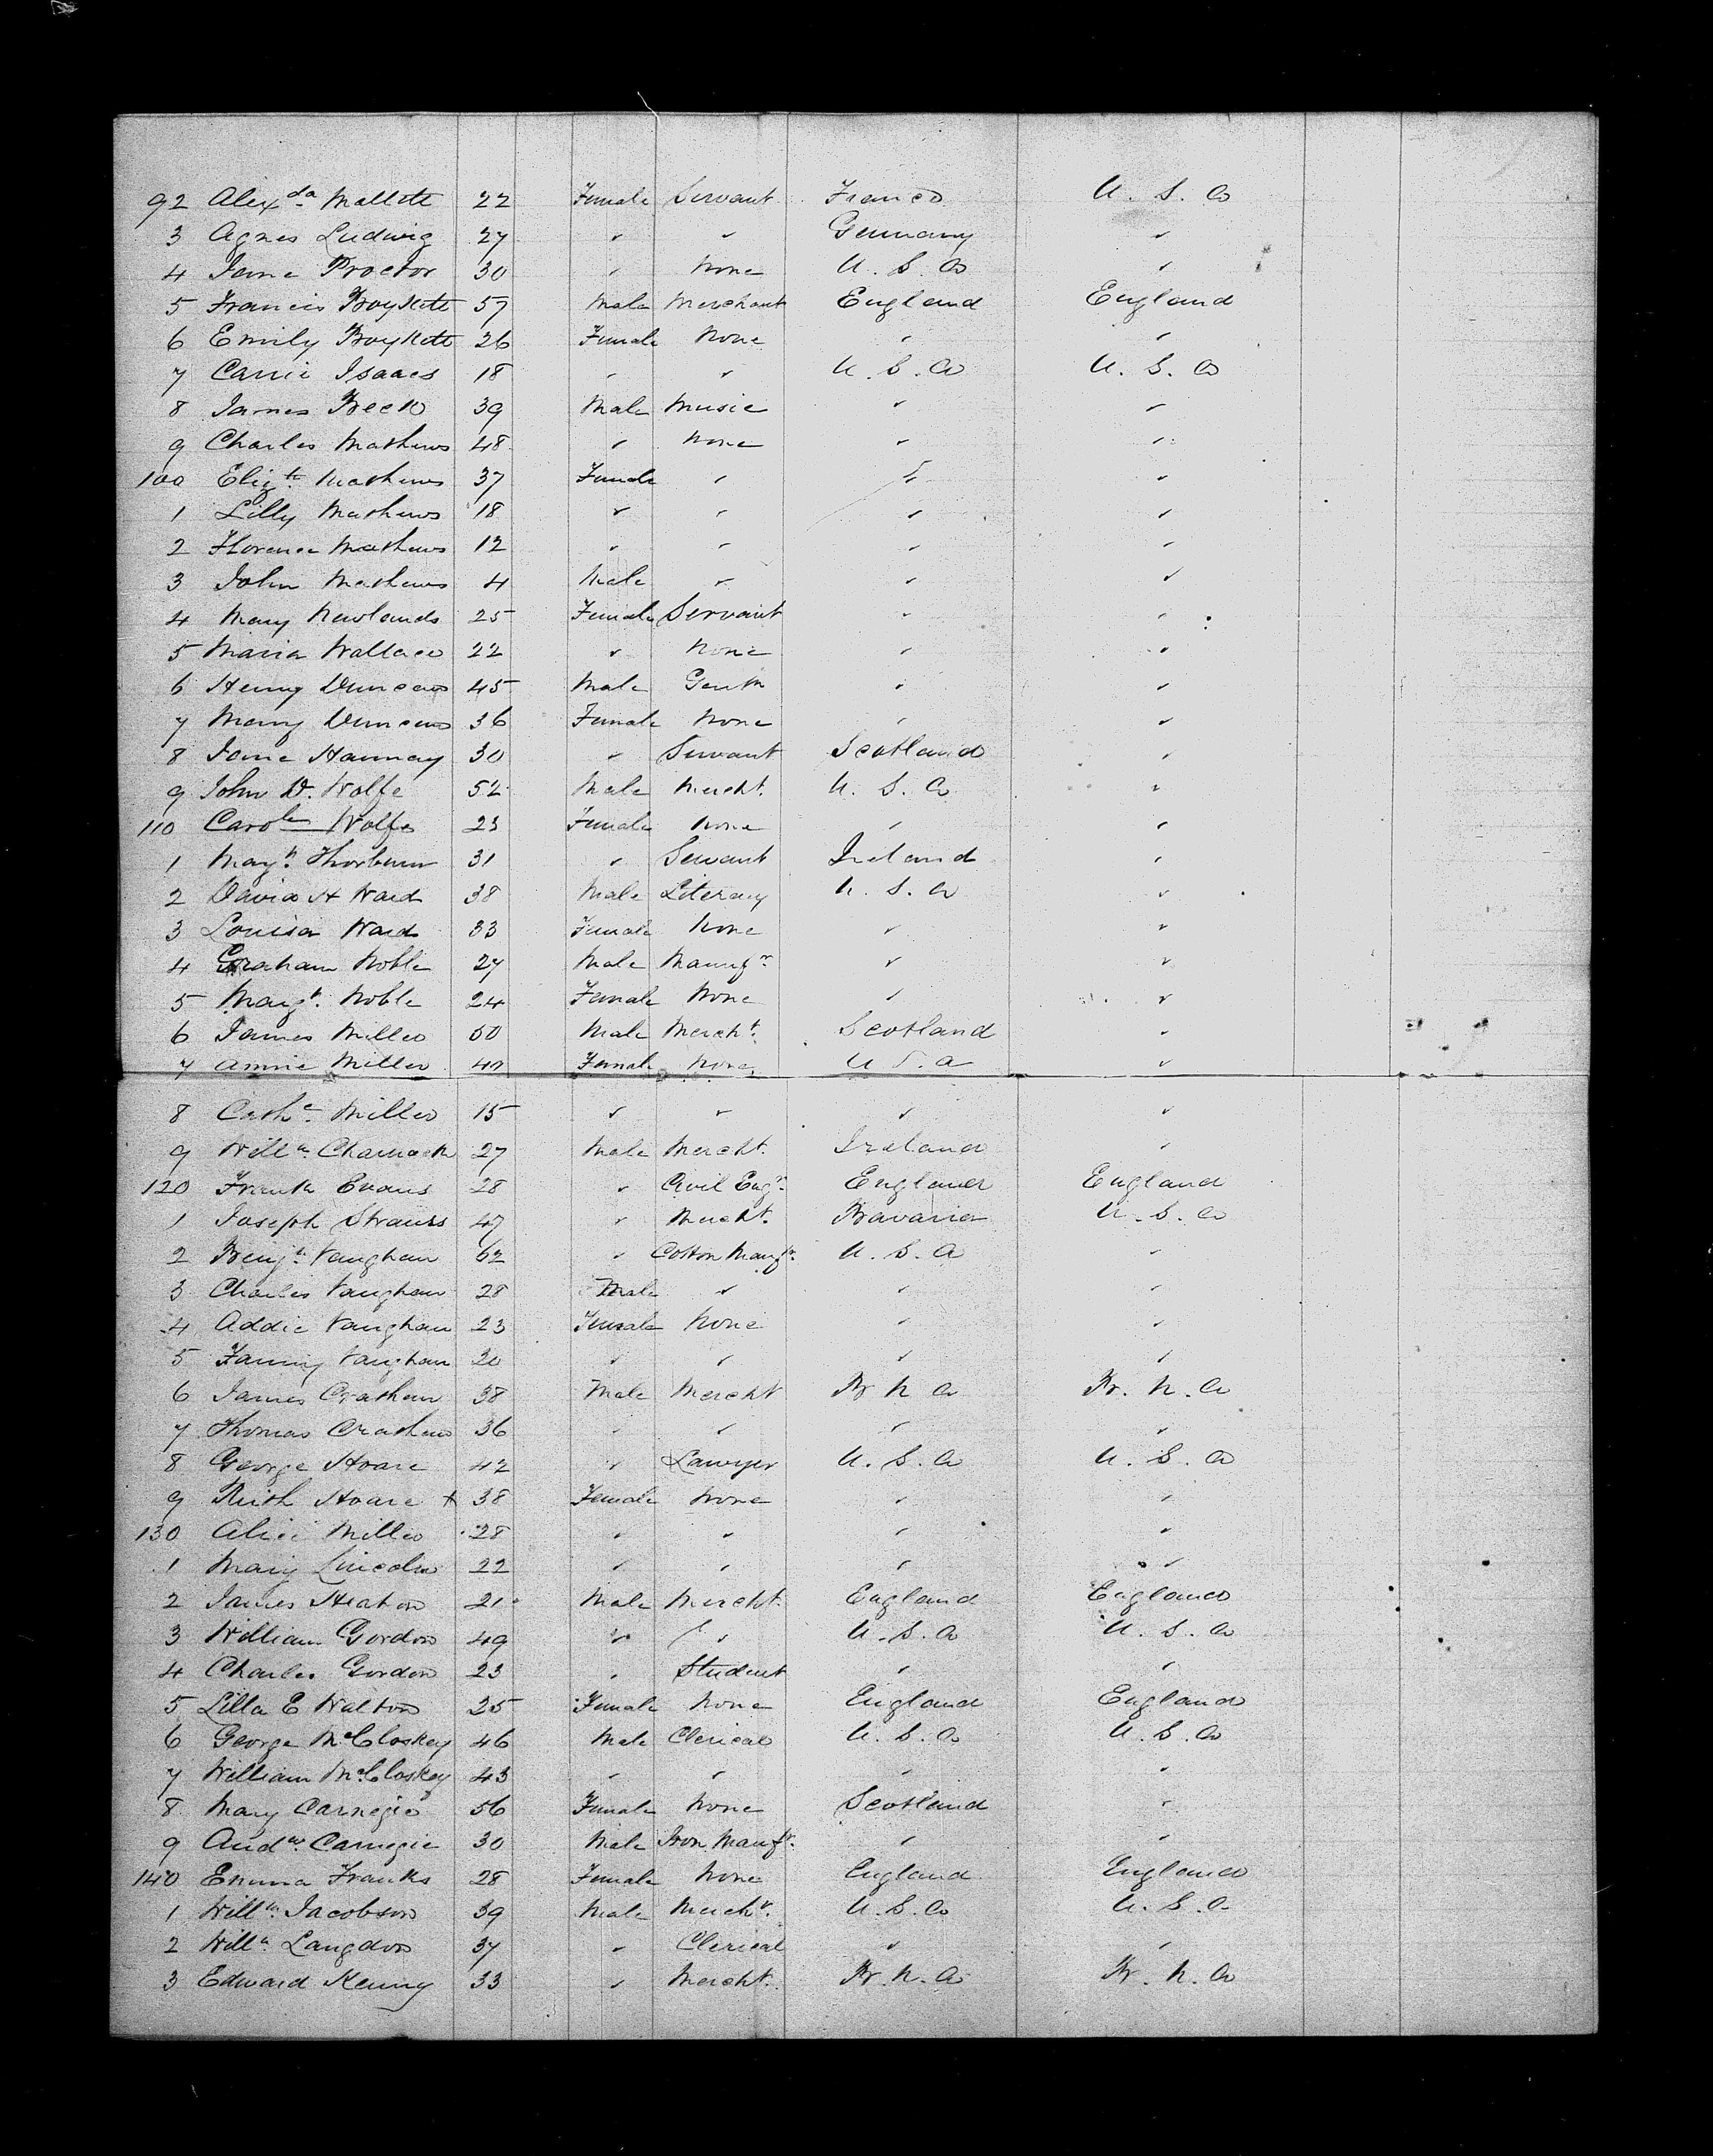 92 Alex da Mallett 22 Female Servant France U. S. A
3 Agnes Ludwig 27 " " Germany "
4 Jane Proctor 30 " None U. S. A "
5 Francis Boykett 57 Male Merchant England England
6 Emily Boykett 26 Female None " "
7 Carrie Isaacs 18 " " U. S. A U. S. A
8 James Beck 39 Male Music " "
9 Charles Mathews 48 " None " "
100 Eliz th Mathews 37 Female " " "
1 Lilly Mathews 18 " " " "
2 Florence Mathews 12 " " " "
3 John Mathews 4 Male " " "
4 Mary Newlands 25 Female Servant " "
5 Maria Wallace 22 " None " "
6 Henry Duncan 45 Male Gentn " "
7 Mary Duncan 36 Female None " "
8 Jane Hannay 30 " Servant Scotland "
9 John D. Wolfe 52 Male Mercht. U. S. A "
110 Carole Wolfe 23 Female None " "
1 Mayt. Thorburn 31 " Servant Ireland "
2 David H Ward 38 Male Literary U. S. A "
3 Louisa Ward 33 Female None " "
4 Graham Noble 27 Male Manufr " "
5 Margt. Noble 24 Female None " "
6 James Miller 50 Male Mercht. Scotland "
7 Annie Miller Female None U S. A "
8 Cathe Miller 15 " " " "
9 Willm. Charnock 27 Male Mercht. Ireland "
120 Frank Evans 28 " Civil Engr. England England
1 Joseph Strauss 47 " Mercht. Bavaria U. S. A
2 Benjn. Vaughan 62 " Cotton Manfr. U. S. A "
3 Charles Vaughan 28 Male " " "
4 Addie Vaughan 23 Female None " "
5 Fanny Vaughan 20 " " " "
6 James Crathern 38 Male Mercht Br N A Br. N. A
7 Thomas Crathern 36 " " " "
8 George Hoare 42 " Lawyer U. S. A U. S. A
9 Ruth Hoare + 38 Female None " "
130 Alice Miller 28 " " " "
1 Mary Lincoln 22 " " " "
2 James Heaton 21 Male Mercht. England England
3 William Gordon 49 " " U. S. A U. S. A
4 Charles Gordon 23 " Student " "
5 Lilla E Walton 25 Female None England England
6 George McCloskey 46 Male Clerical U. S. A U. S. A
7 William McCloskey 43 " " " "
8 Mary Carnegie 56 Female None Scotland "
9 Andw. Carnegie 30 Male Iron Manfr. " "
140 Emma Franks 28 Female None England England
1 Willm. Jacobson 39 Male Mercht. U. S. A U. S. A
2 Willm. Langdon 37 " Clerical " "
3 Edward Kenny 33 " Mercht. Br. N. A Br. N. A